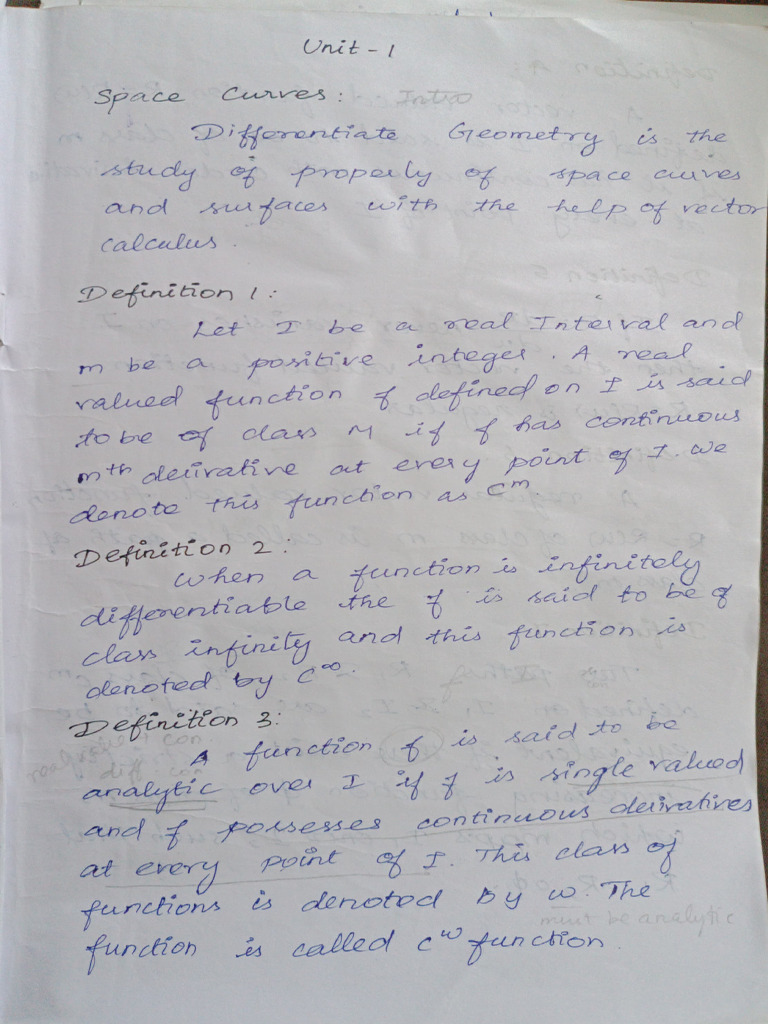 Unit - 1
Space Curves: Intro
Differentiate Geometry is the
study of properly of space curves
and surfaces with the help of vector
calculus.
Definition 1:
Let I be a real Interval and
m be a positive integer. A real
valued function f defined on I is said
to be of class M if f has continuous
mth derivative at every point of I. we
denote this function as C^m
Definition 2:
When a function is infinitely
differentiable the f is said to be of
class infinity and this function is
denoted by C^∞.
Definition 3:
A function f is said to be
analytic over I if f is single valued
and f possesses continuous derivatives
at every point of I. This class of
functions is denoted by ω. The
must be analytic
function is called C^ω function.